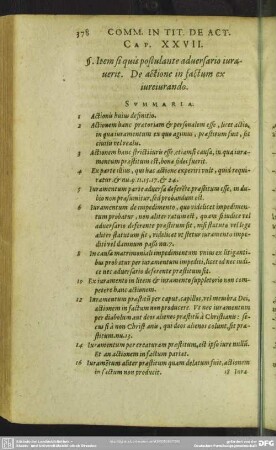 378 COMM. IN TIT. DE ACT.
CAP. XXVII.
§. Item si quis postulante adversario iura-
verit. De actione in factum ex
iureiurando.
SUMMARIA.
1 Actionis huius definitio.
2 Actionem hanc prætoriam & personalem esse, licet actio,
in qua iuramentum ex quo agimus, præstitum fuit, sit
civilis vel realis.
3 Actionem hanc stricti iuris esse, etiamsi causa, in qua iura-
mentum præstitum est, bonæ fidei fuerit.
4 Ex parte illius, qui hac actione experiri vult, quid requi-
ratur & nu. 4.11.15.17. & 24.
5 Iuramentum parte adversa deferente præstitum esse, in du-
bio non præsumitur, sed probandum est.
6 Iuramentum de impedimento, quo videlicet impedimen-
tum probatur, non aliter ratum est, quam si iudice vel
adversario deferente præstitum sit, nisi statuta vel lege
aliter statutum sit,
diti vel damnum passi nu. 7.
8 In causa matrimoniali impedimentum unius ex litiganti-
bus probatur per iuramentum impediti, licet id nec iudi-
ce nec adversario deferente præstitum sit.
10 Ex iuramento in litem & iuramento suppletorio non com-
petere hanc actionem.
12 Iuramentum præstitum per caput, capillos, vel membra Dei,
actionem in factum non producere. Ut nec iuramentum
per diabolum aut deos alienos præstitum à Christiano: se-
cus si à non Christiano, qui deos alienos colunt, sit præ-
stitum. nu. 13.
14 Iuramentum per creaturam præstitum, est ipso iure nullum.
Et an actionem in factum pariat.
16 Iuramentum aliter præstitum quam delatum fuit, actionem
in factum non producit.
18 Iura